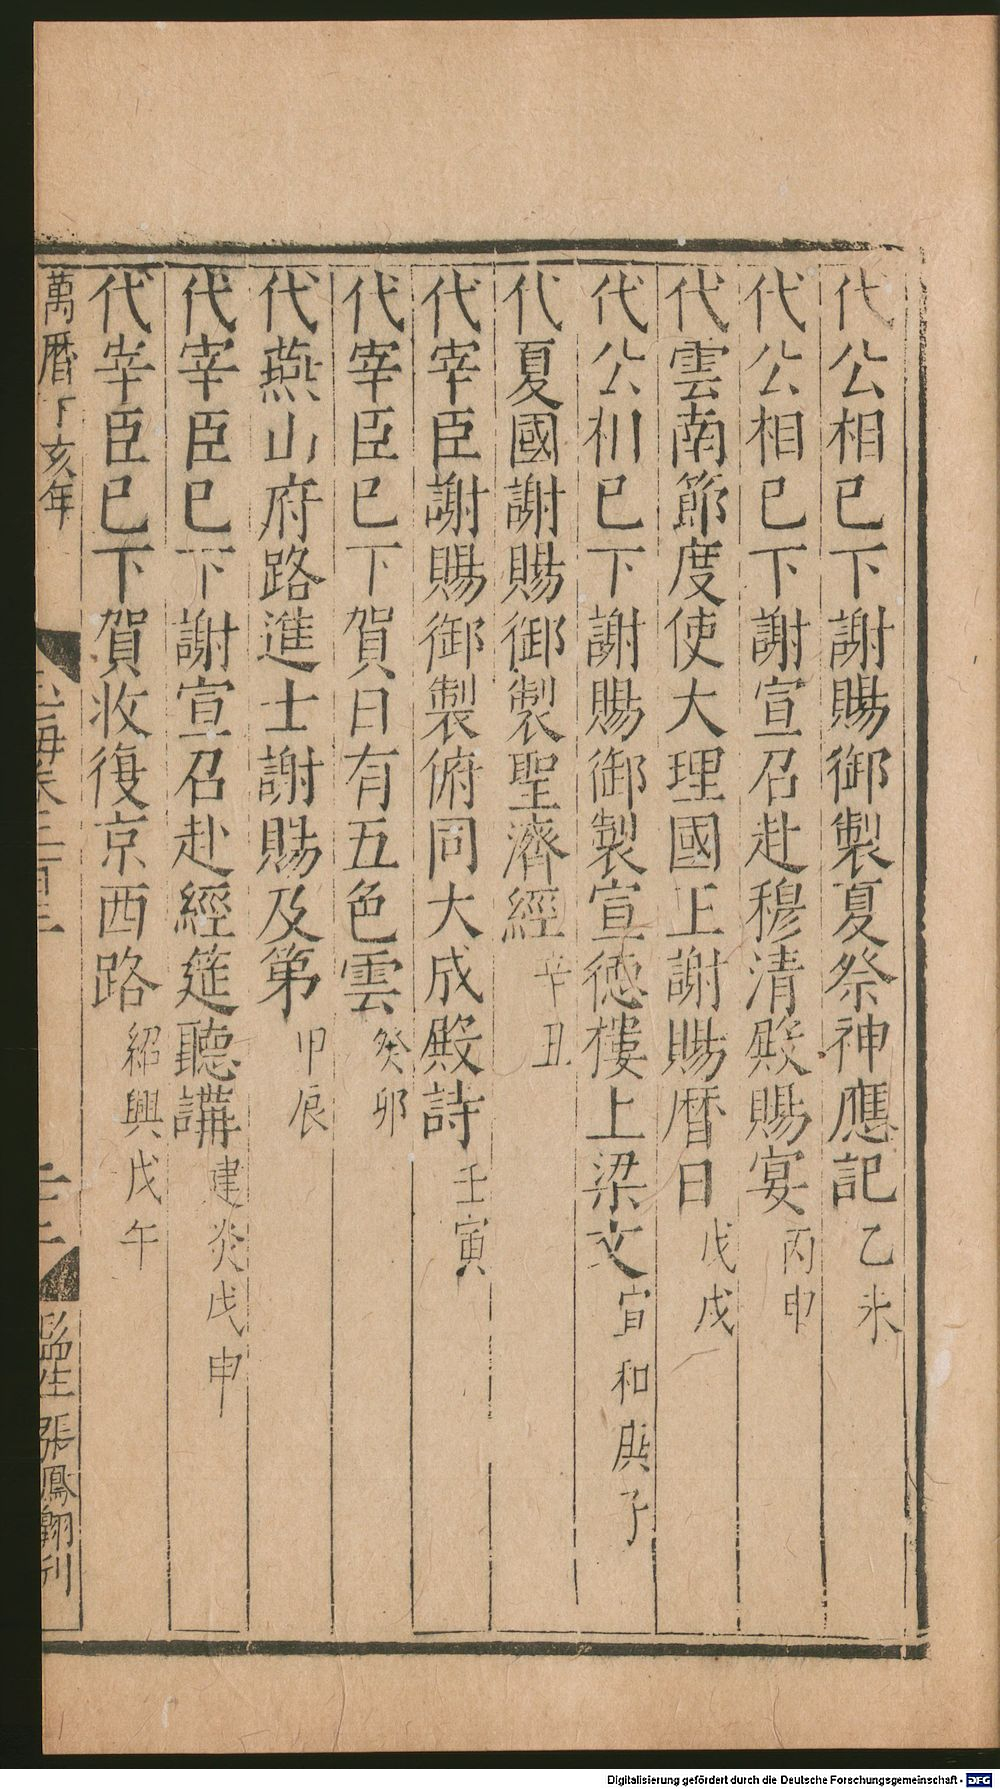 代公相已下謝賜御製夏祭神應記乙未
代公相已下謝宣召赴穆清殿賜宴丙申
代雲南節度使大理國王謝賜曆日戊戌
代公相已下謝賜御製宣德樓上梁文宣和庚子
代夏國謝賜御製聖濟經辛丑
代宰臣謝賜御製俯同大成殿詩壬寅
代宰臣已下賀日有五色雲癸卯
代燕山府路進士謝賜及第甲辰
代宰臣已下謝宣召赴經筵聽講建炎戊申
代宰臣已下賀收復京西路紹興戊午
萬曆丁亥年
玉海卷二百三
監生張鳳翱刊
Digitalisierung gefördert durch die Deutsche Forschungsgemeinschaft - DFG